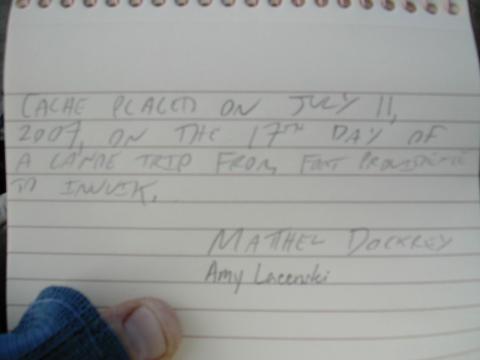 CACHE PLACED ON JULY 11,
2009, ON THE 17TH DAY OF
A CANOE TRIP FROM FORT PROVIDENCE
TO INUVIK.
MATTHEL DOCKREY
Amy Lacenski